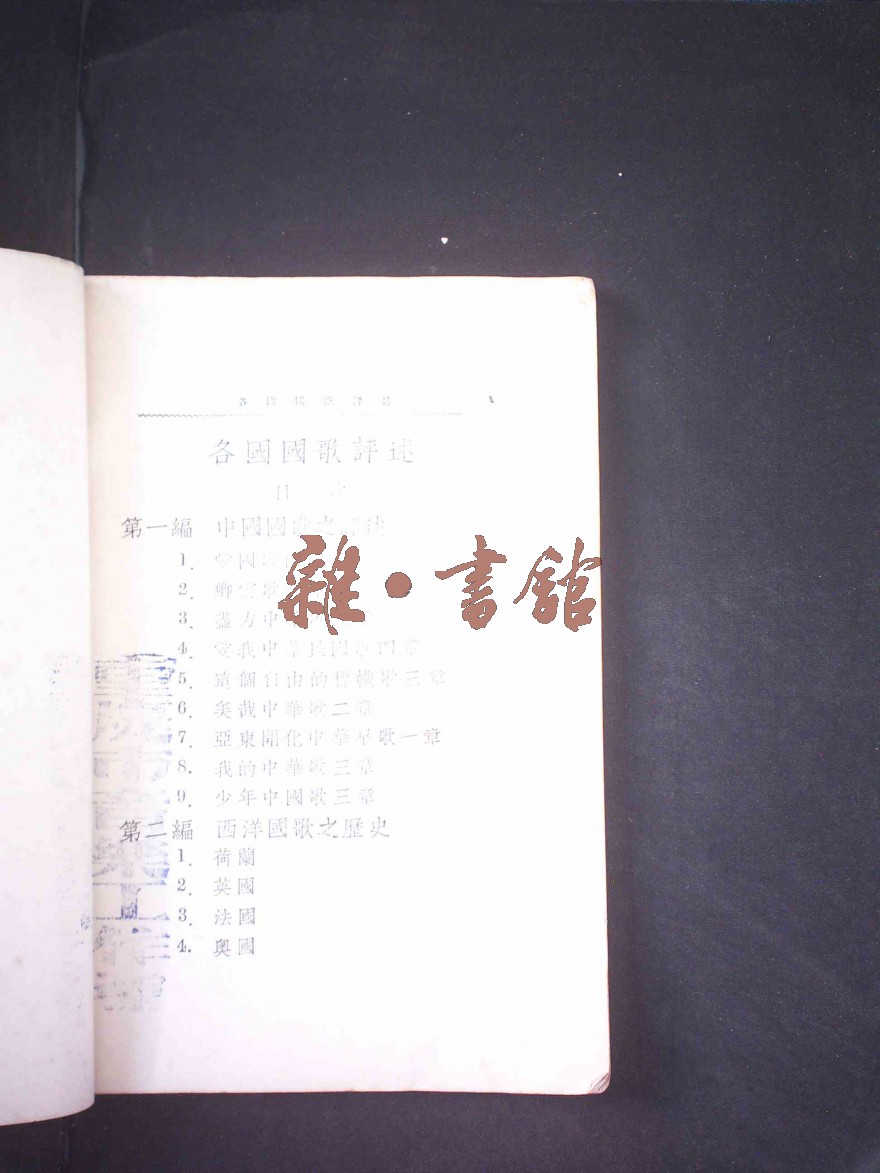 各國國歌評述
各國國歌評述
目
第一編 中國國歌之評述
1. 國歌
2. 卿雲歌
3. 盡力中
4. 愛我中華民國歌四章
5. 這個自由的旗幟歌三章
6. 美哉中華歌二章
7. 亞東開化中華早歌一章
8. 我的中華歌三章
9. 少年中國歌三章
第二編 西洋國歌之歷史
1. 荷蘭
2. 英國
3. 法國
4. 奧國
雜·書館